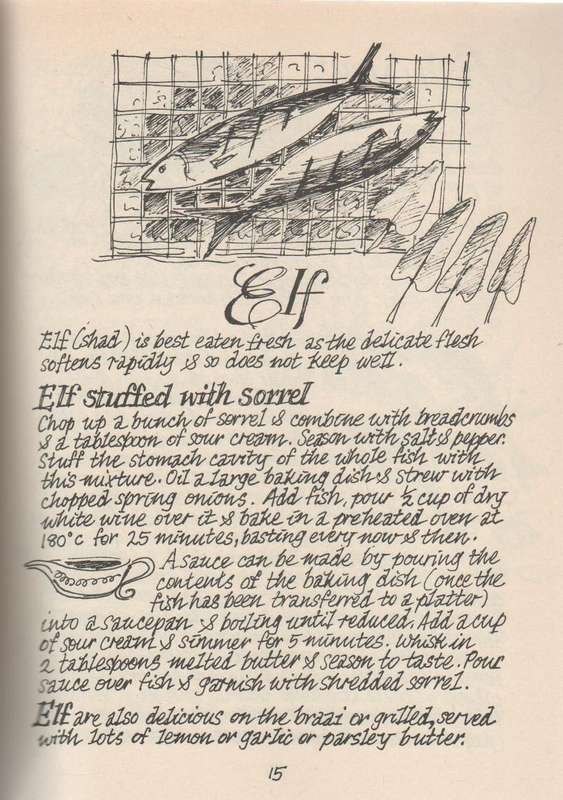 Elf
Elf (shad) is best eaten fresh as the delicate flesh
softens rapidly & so does not keep well.
Elf stuffed with sorrel
Chop up a bunch of sorrel & combine with breadcrumbs
& a tablespoon of sour cream. Season with salt & pepper.
Stuff the stomach cavity of the whole fish with
this mixture. Oil a large baking dish & strew with
chopped spring onions. Add fish, pour ½ cup of dry
white wine over it & bake in a preheated oven at
180°c for 25 minutes, basting every now & then.
A sauce can be made by pouring the
contents of the baking dish (once the
fish has been transferred to a platter)
into a saucepan & boiling until reduced. Add a cup
of sour cream & simmer for 5 minutes. Whisk in
2 tablespoons melted butter & season to taste. Pour
sauce over fish & garnish with shredded sorrel.
Elf are also delicious on the braai or grilled, served
with lots of lemon or garlic or parsley butter.
15